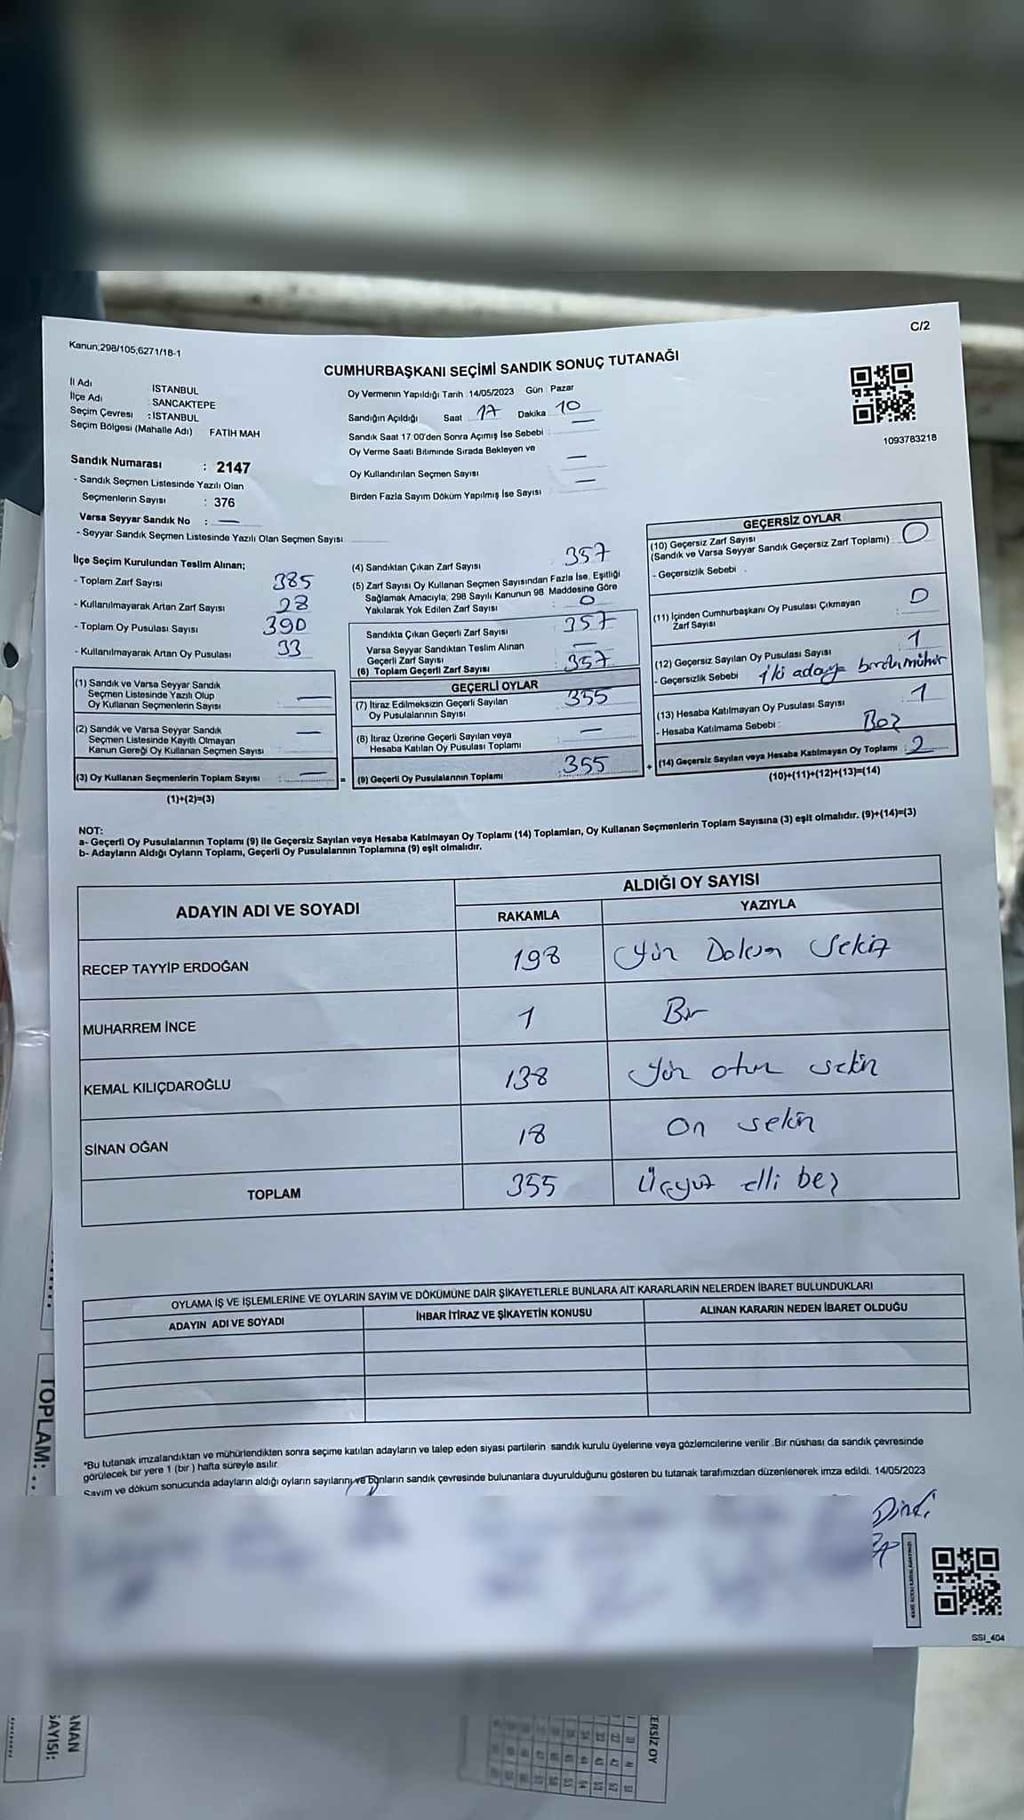 C/2
Kanun;298/105;6271/18-1
CUMHURBAŞKANI SEÇİMİ SANDIK SONUÇ TUTANAĞI
İl Adı İSTANBUL
İlçe Adı : SANCAKTEPE
Seçim Çevresi : İSTANBUL
Seçim Bölgesi (Mahalle Adı) FATİH MAH
Sandık Numarası : 2147
- Sandık Seçmen Listesinde Yazılı Olan
Seçmenlerin Sayısı : 376
Varsa Seyyar Sandık No : —
- Seyyar Sandık Seçmen Listesinde Yazılı Olan Seçmen Sayısı
Oy Vermenin Yapıldığı Tarih :14/05/2023 Gün : Pazar
Sandığın Açıldığı Saat 17 Dakika 10
Sandık Saat 17:00'den Sonra Açımış İse Sebebi : —
Oy Verme Saati Bitiminde Sırada Bekleyen ve
Oy Kullandırılan Seçmen Sayısı —
Birden Fazla Sayım Döküm Yapılmış İse Sayısı : —
1093783218
İlçe Seçim Kurulundan Teslim Alınan;
- Toplam Zarf Sayısı 385
- Kullanılmayarak Artan Zarf Sayısı 28
- Toplam Oy Pusulası Sayısı 390
- Kullanılmayarak Artan Oy Pusulası 33
(1) Sandık ve Varsa Seyyar Sandık
Seçmen Listesinde Yazılı Olup
Oy Kullanan Seçmenlerin Sayısı —
(2) Sandık ve Varsa Seyyar Sandık
Seçmen Listesinde Kayıtlı Olmayan
Kanun Gereği Oy Kullanan Seçmen Sayısı —
(3) Oy Kullanan Seçmenlerin Toplam Sayısı —
(1)+(2)=(3)
(4) Sandıktan Çıkan Zarf Sayısı 357
(5) Zarf Sayısı Oy Kullanan Seçmen Sayısından Fazla İse, Eşitliği
Sağlamak Amacıyla; 298 Sayılı Kanunun 98. Maddesine Göre
Yakılarak Yok Edilen Zarf Sayısı 0
Sandıkta Çıkan Geçerli Zarf Sayısı 357
Varsa Seyyar Sandıktan Teslim Alınan
Geçerli Zarf Sayısı —
(6) Toplam Geçerli Zarf Sayısı 357
GEÇERLİ OYLAR
(7) İtiraz Edilmeksizin Geçerli Sayılan
Oy Pusulalarının Sayısı 355
(8) İtiraz Üzerine Geçerli Sayılan veya
Hesaba Katılan Oy Pusulası Toplamı —
= (9) Geçerli Oy Pusulalarının Toplamı 355
GEÇERSİZ OYLAR
(10) Geçersiz Zarf Sayısı
(Sandık ve Varsa Seyyar Sandık Geçersiz Zarf Toplamı) 0
- Geçersizlik Sebebi :
(11) İçinden Cumhurbaşkanı Oy Pusulası Çıkmayan
Zarf Sayısı 0
(12) Geçersiz Sayılan Oy Pusulası Sayısı 1
- Geçersizlik Sebebi iki adaya mühür
(13) Hesaba Katılmayan Oy Pusulası Sayısı 1
- Hesaba Katılmama Sebebi : Boş
+ (14) Geçersiz Sayılan veya Hesaba Katılmayan Oy Toplamı : 2
(10)+(11)+(12)+(13)=(14)
NOT:
a- Geçerli Oy Pusulalarının Toplamı (9) ile Geçersiz Sayılan veya Hesaba Katılmayan Oy Toplamı (14) Toplamları, Oy Kullanan Seçmenlerin Toplam Sayısına (3) eşit olmalıdır. (9)+(14)=(3)
b- Adayların Aldığı Oyların Toplamı, Geçerli Oy Pusulalarının Toplamına (9) eşit olmalıdır.
ADAYIN ADI VE SOYADI
ALDIĞI OY SAYISI
RAKAMLA YAZIYLA
RECEP TAYYİP ERDOĞAN 198 Yüz Doksan Sekiz
MUHARREM İNCE 1 Bir
KEMAL KILIÇDAROĞLU 138 Yüz otuz sekiz
SİNAN OĞAN 18 On sekiz
TOPLAM 355 Üçyüz elli beş
OYLAMA İŞ VE İŞLEMLERİNE VE OYLARIN SAYIM VE DÖKÜMÜNE DAİR ŞİKAYETLERLE BUNLARA AİT KARARLARIN NELERDEN İBARET BULUNDUKLARI
ADAYIN ADI VE SOYADI İHBAR İTİRAZ VE ŞİKAYETİN KONUSU ALINAN KARARIN NEDEN İBARET OLDUĞU
*Bu tutanak imzalandıktan ve mühürlendikten sonra seçime katılan adayların ve talep eden siyasi partilerin sandık kurulu üyelerine veya gözlemcilerine verilir. Bir nüshası da sandık çevresinde
görülecek bir yere 1 (bir) hafta süreyle asılır.
Sayım ve döküm sonucunda adayların aldığı oyların sayılarını ve bunların sandık çevresinde bulunanlara duyurulduğunu gösteren bu tutanak tarafımızdan düzenlenerek imza edildi. 14/05/2023
SSI_404
TOPLAM: . . .
ANAN
SAYISI:
ERSİZ OY